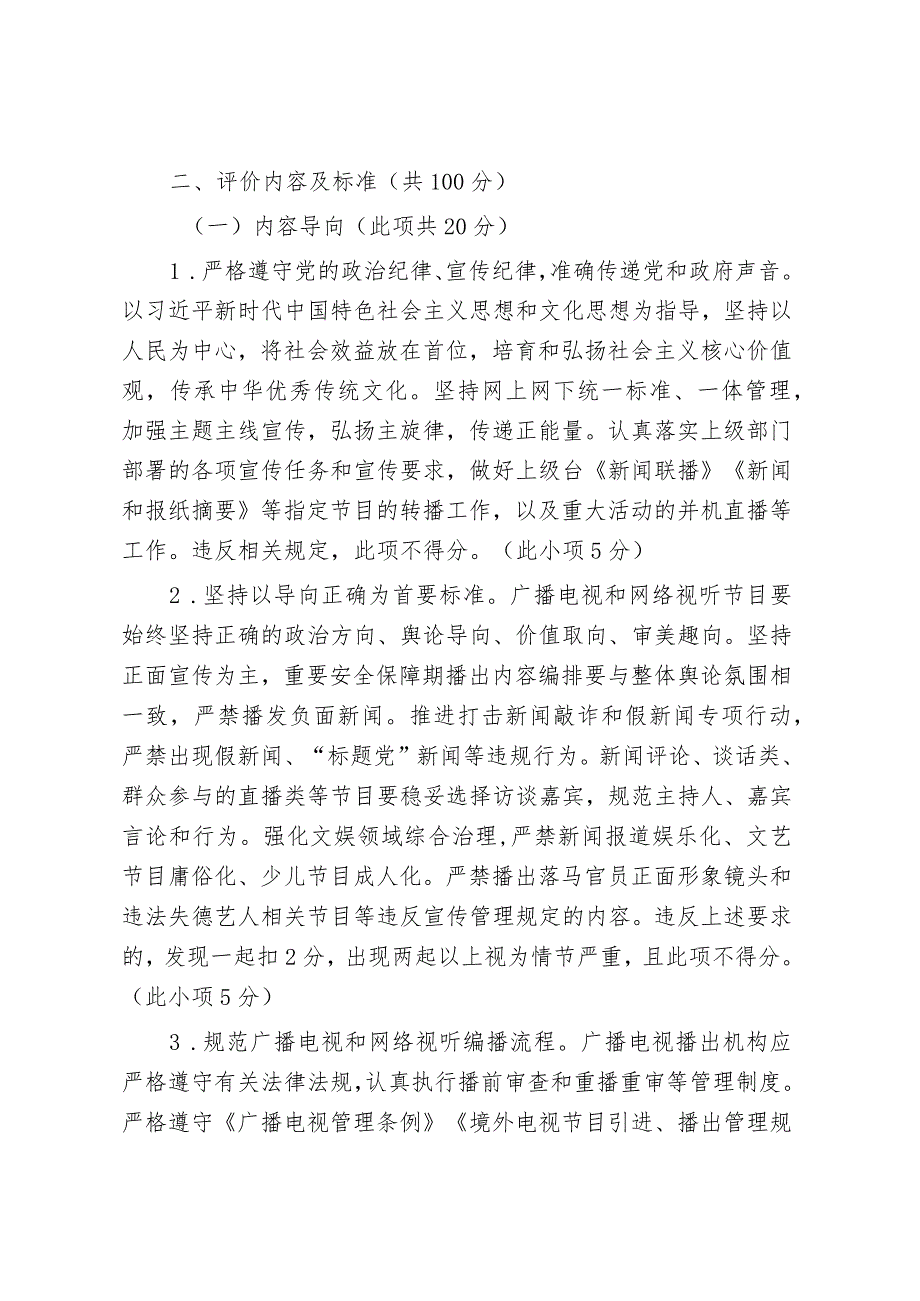 二、评价内容及标准（共100分）
（一）内容导向（此项共20分）
1.严格遵守党的政治纪律、宣传纪律,准确传递党和政府声音。
以习近平新时代中国特色社会主义思想和文化思想为指导，坚持以
人民为中心，将社会效益放在首位，培育和弘扬社会主义核心价值
观，传承中华优秀传统文化。坚持网上网下统一标准、一体管理，
加强主题主线宣传，弘扬主旋律，传递正能量。认真落实上级部门
部署的各项宣传任务和宣传要求，做好上级台《新闻联播》《新闻
和报纸摘要》等指定节目的转播工作，以及重大活动的并机直播等
工作。违反相关规定，此项不得分。（此小项5分）
2.坚持以导向正确为首要标准。广播电视和网络视听节目要
始终坚持正确的政治方向、舆论导向、价值取向、审美趣向。坚持
正面宣传为主，重要安全保障期播出内容编排要与整体舆论氛围相
一致，严禁播发负面新闻。推进打击新闻敲诈和假新闻专项行动，
严禁出现假新闻、“标题党”新闻等违规行为。新闻评论、谈话类、
群众参与的直播类等节目要稳妥选择访谈嘉宾，规范主持人、嘉宾
言论和行为。强化文娱领域综合治理,严禁新闻报道娱乐化、文艺
节目庸俗化、少儿节目成人化。严禁播出落马官员正面形象镜头和
违法失德艺人相关节目等违反宣传管理规定的内容。违反上述要求
的，发现一起扣2分，出现两起以上视为情节严重，且此项不得分。
（此小项5分）
3.规范广播电视和网络视听编播流程。广播电视播出机构应
严格遵守有关法律法规，认真执行播前审查和重播重审等管理制度。
严格遵守《广播电视管理条例》《境外电视节目引进、播出管理规